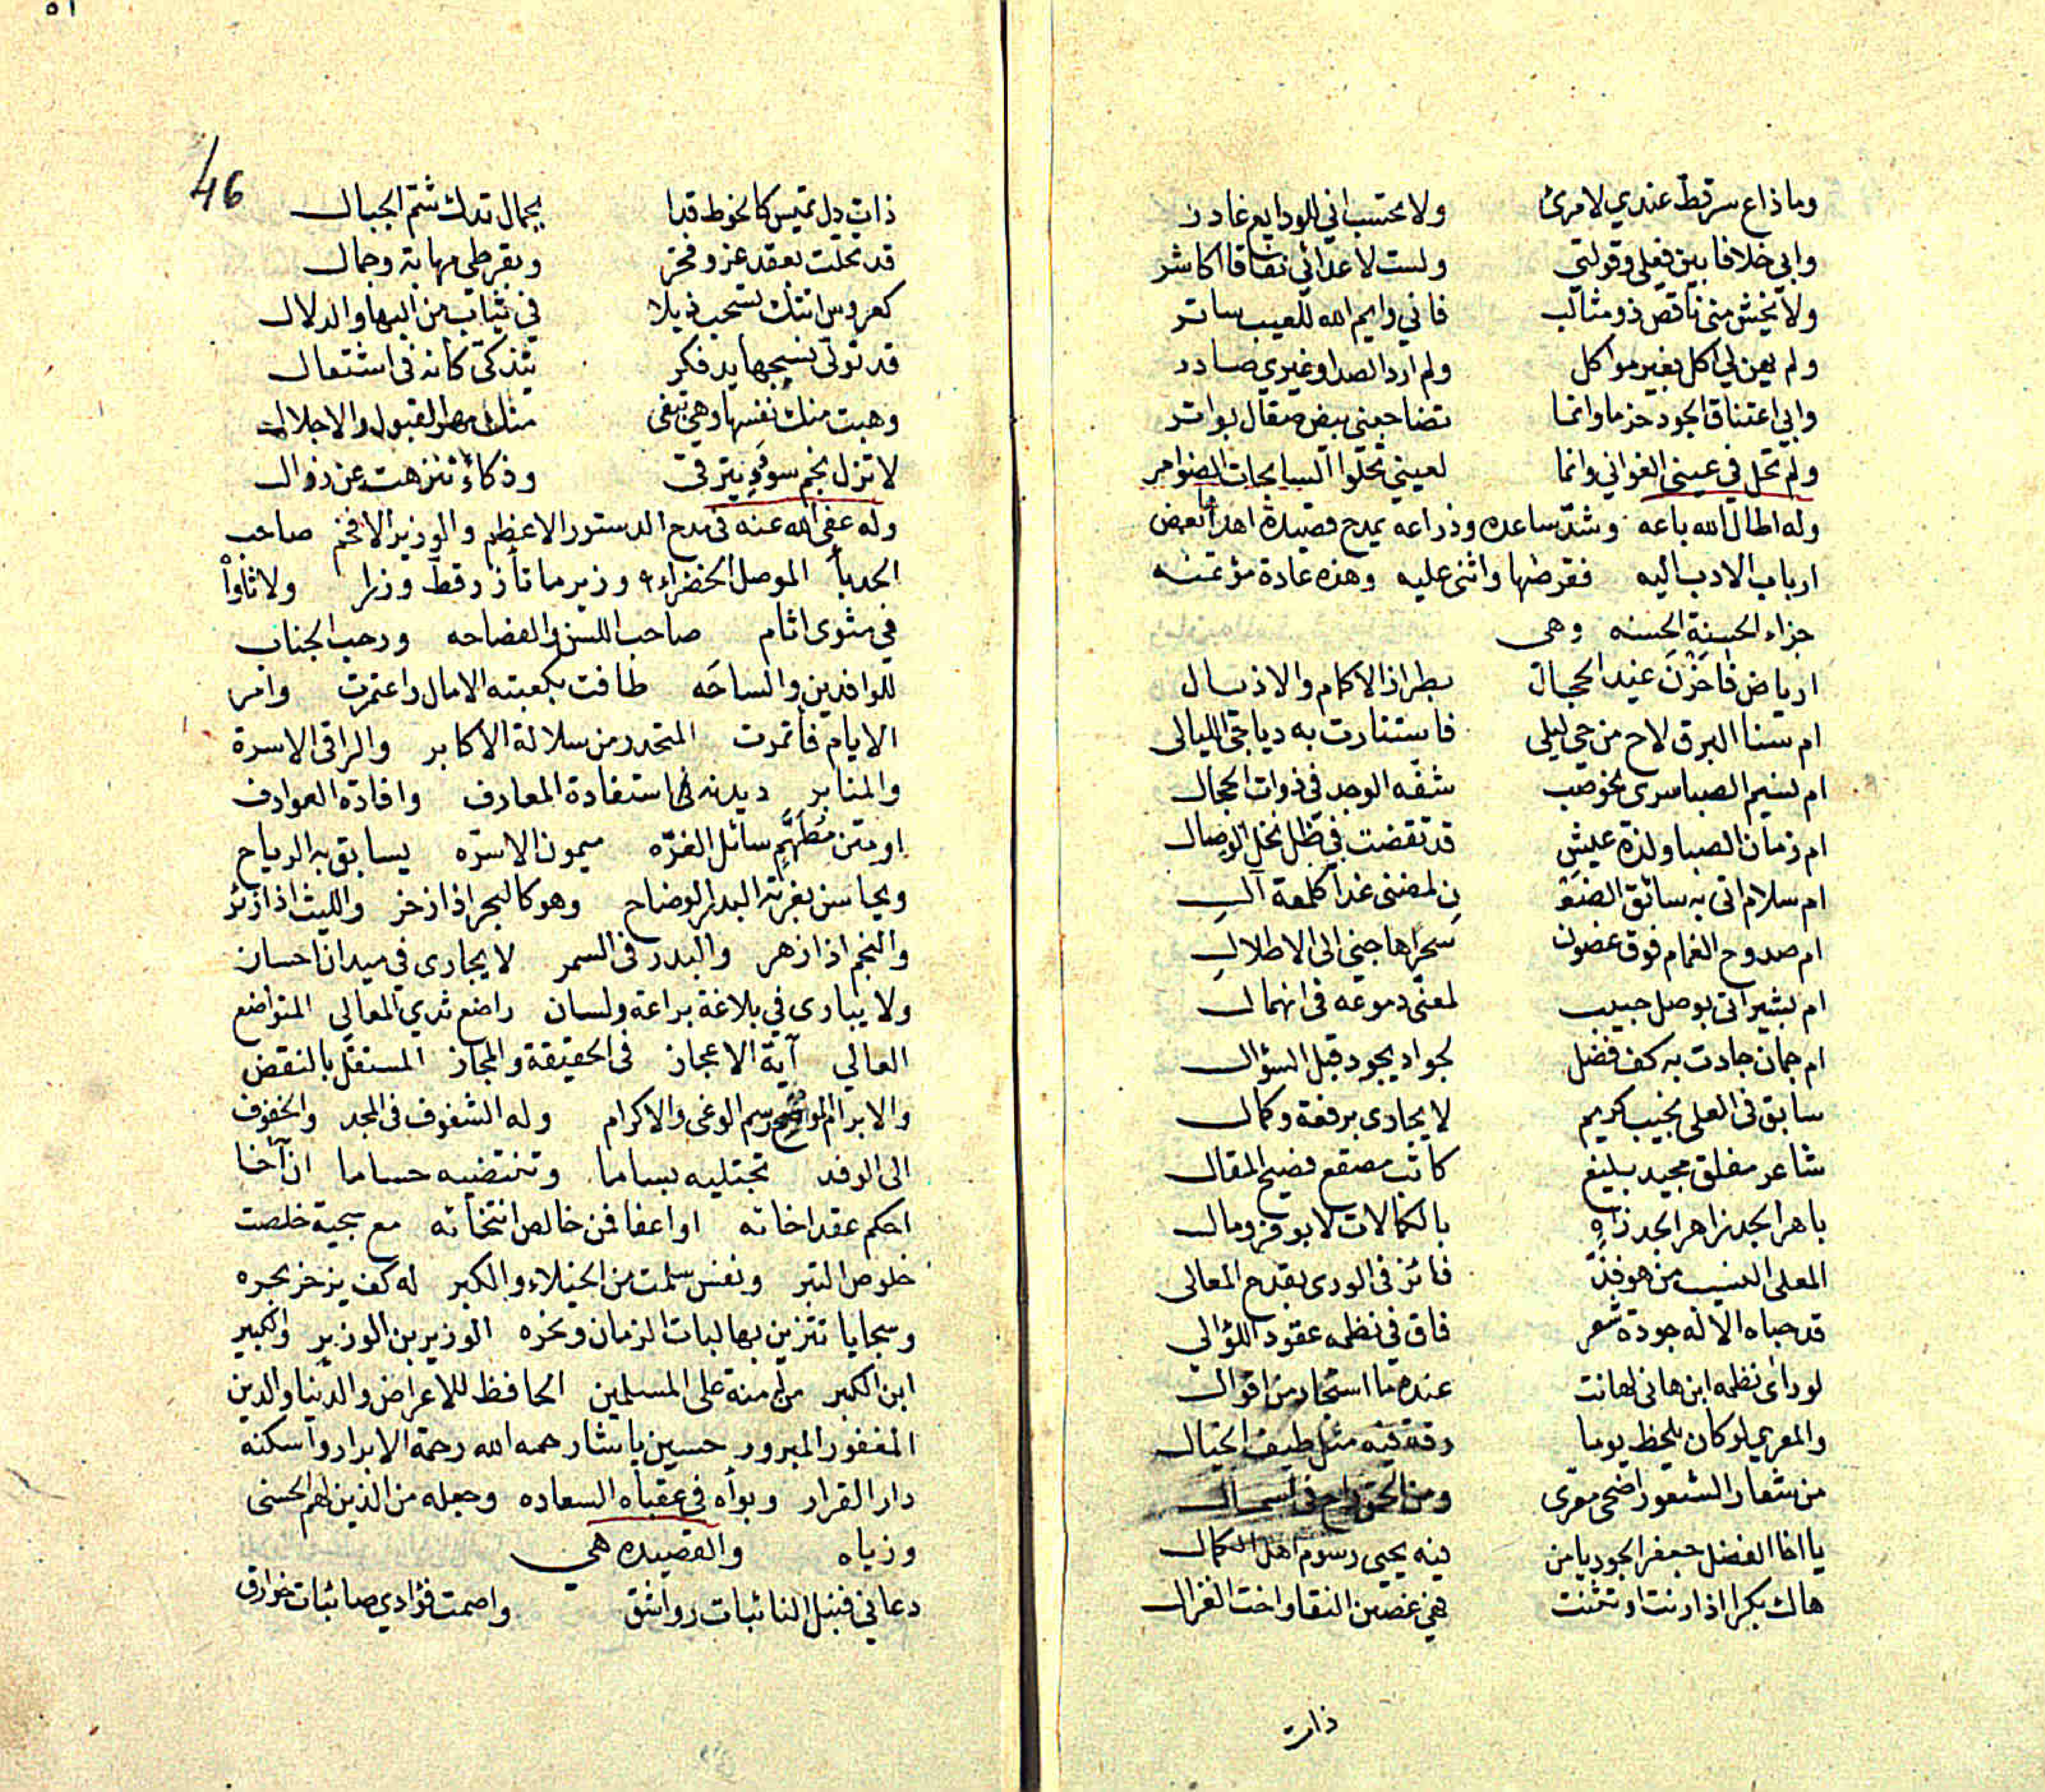 وما ذاع سر قط عندي لامرئ ولا تحتسب اني للودايع غادر
وابي خلافا بين فعلي وقولتي ولست لاعدائي نفاقا اكاشر
ولا يخيش مني ناقص ذو مثالب فاني وايم الله للعيب ساتر
ولم يهن لي اكل بغير مواكل ولم ارد الصدا وغيري صادر
وابي اعتناق الجود حزما وانما تضاجعني بيض صقال بواتر
ولم تحل في عيني الغواني وانما لعيني تحلوا السابحات الضوامر
وله اطال الله باعه وشد ساعده وذراعه يمدح قصيدة اهداها بعض
ارباب الادب اليه فقرضها واثنى عليه وهذه عادة مؤتمنه
جزاء الحسنة الحسنه وهي
ارياض فاخرن عند الحجال بطراز الاكمام والاذيال
ام سنا البرق لاح من حي ليلى فاستنارت به دياجي الليالى
ام نسيم الصبا سرى نحو صب شفه الوجد في ذوات الحجال
ام زمان الصبا ولذة عيش قد تقضت في ظل نخل الوصال
ام سلام اتى به سائق الضعن لمضنى غدا كلمعة آل
ام صدوح الغمام فوق غصون سحرا هاجني الى الاطلال
ام بشير اتى بوصل حبيب لمعنى دموعه في انهمال
ام جمان جادت به كف فضل لجواد يجود قبل السؤال
سابق في العلى نجيب كريم لا يحادى برفعة وكمال
شاعر مفلق مجيد بليغ كاتب مصقع فصيح المقال
باهر الجد زاهر الجد زاه بالكمالات لا بوفر ومال
المعلى النسيب من هو فذ فائز في الورى بقدح المعالى
قد حباه الاله جودة شعر فاق في نظمه عقود اللؤالي
لو راى نظمه ابن هانى لهانت عنده ما استجاد من اقوال
والمعري لو كان يلحظ يوما رقة فيه مثل طيف الخيال
من شعار الشعور اضحى معرى ومن الحق راح في اسمال
يا اخا الفضل جعفر الجود يا من فيه يحيى رسوم اهل الكمال
هاك بكرا اذا رنت او تثنت فهي غصن النقا واخت الغزال
ذات
46
ذات دل تميس كالخوط قدا بجمال تدك شم الجبال
قد تحلت بعقد عز وفخر وبقرطي مهابة وجمال
كعروس اتتك تسحب ذيلا في ثياب من البها والدلال
قد تولى نسيجها يد فكر يتذكى كانه في اشتعال
وهبت منك نفسها وهي تبغى منك مهر القبول والاجلال
لا تزل نجم سودد يترقى وذكاء تنزهت عن زوال
وله عفى الله عنه في مدح الدستور الاعظم والوزير الافخم صاحب
الحدبأ الموصل الخضراء وزير ما تأزر قط وزرا ولا ثاوأ
في مثوى اثام صاحب اللسن والفصاحه ورحب الجناب
للوافدين والساحه طافت بكعبته الامال واعتمرت وامر
الايام فأتمرت المتحدر من سلالة الاكابر والراقى الاسرة
والمنابر ديدنه في استفادة المعارف وافادة العوارف
او متن مطهم سائل الغره ميمون الاسره يسابق به الرياح
ويحاسن بغرته البدر الوضاح وهو كالبحر اذا زخر والليث اذا زئر
والنجم اذا زهر والبدر في السمر لا يجارى في ميدان احسان
ولا يبارى في بلاغة براعة ولسان راضع ثدي المعالي المتواضع
العالي آية الاعجاز في الحقيقة والمجاز المستقل بالنقض
والابرام الموضح رسم الوغى والاكرام وله الشغوف في المجد والخفوف
الى الوفد تجتليه بساما وتنتضيه حساما ان آخا
احكم عقد اخائه او اعفا فمن خالص انتخائه مع سجية خلصت
خلوص التبر ونفس سلمت من الخيلاء والكبر له كف يزخر بحره
وسجايا تتزين بها لبات الزمان ونحره الوزير بن الوزير والكبير
ابن الكبير من له منة على المسلمين الحافظ للاعراض والدنيا والدين
المغفور المبرور حسين باشا رحمه الله رحمة الابرار واسكنه
دار القرار وبوأه في عقباه السعاده وجعله من الذين لهم الحسنى
وزياه والقصيده هي
دعاني فنبل النائبات رواشق واصمت فؤادي صائبات خوارق